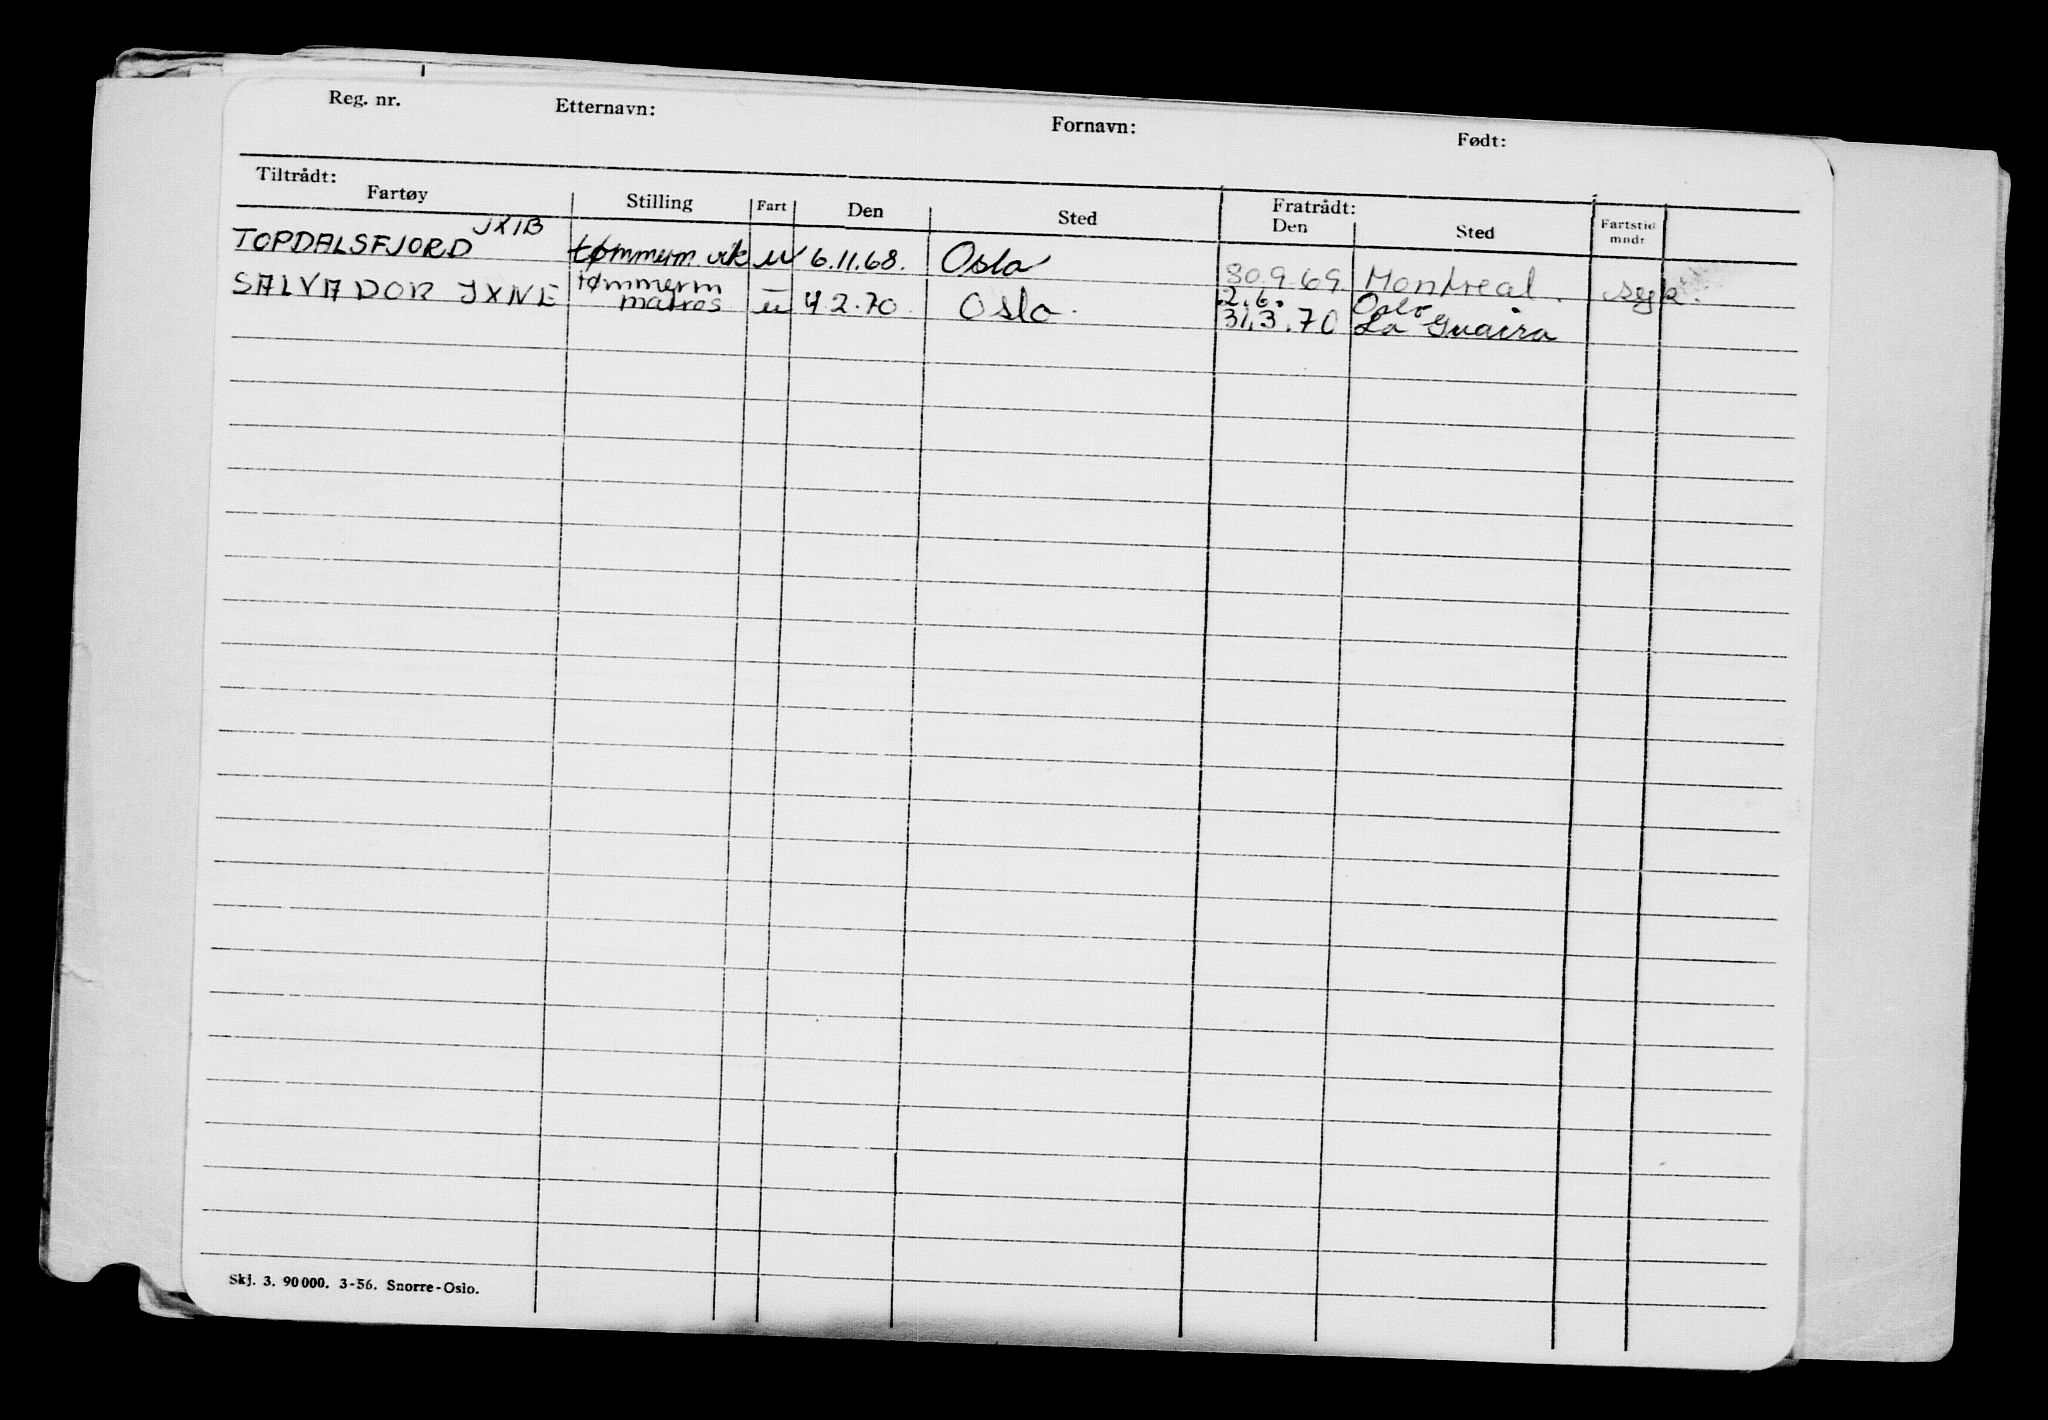 Reg. nr. Etternavn: Fornavn: Født:
Tiltrådt: Fratrådt:
Fartøy Stilling Fart Den Sted Den Sted Fartstid mndr
JXIB
TOPDALSFJORD tømmerm. vik u 6.11.68. Oslo 30.9.69 Montreal. syk.
tømmerm 2.6. Oslo
SALVADOR JXNE matros u 4 2.70. Oslo. 31.3.70 La Guaira
Skj. 3. 90 000. 3-56. Snorre-Oslo.